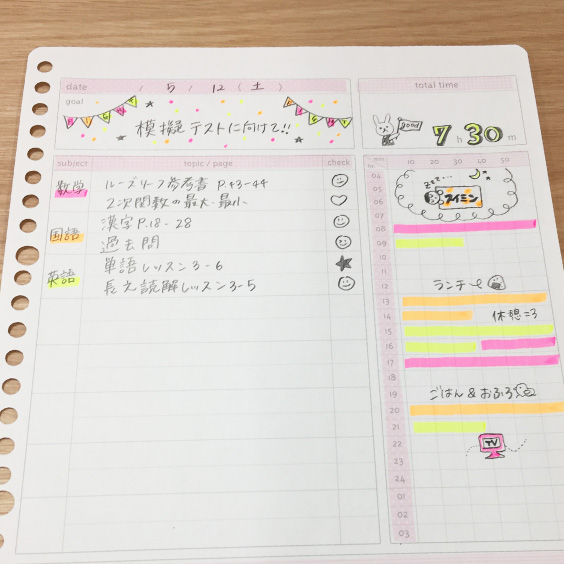 date / 5 / 12 (土)
total time
goal
模擬テストに向けて!!
good
7h 30m
subject topic / page check
数学 ルーズリーフ参考書 P.43-44
2次関数の最大・最小
国語 漢字 P.18-28
過去問
英語 単語レッスン3-6
長文読解レッスン3-5
10 20 30 40 50
04
05
スイミン
06
07
08
09
10
11
12 ランチ
13
14 休憩=3
15
16
17
18
19 ごはん&おふろ
20
21
22 TV
23
24
01
02
03